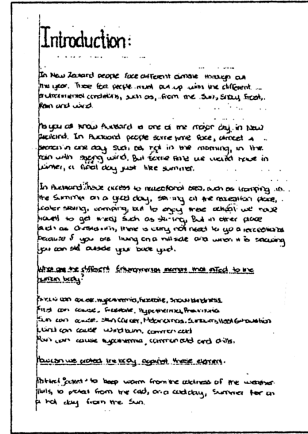 Introduction:
In New Zealand people face different climate through out
the year. These people must put up with the different
environmental conditions, such as, from the Sun, Snow, frost,
Rain and wind.
As you all know Auckland is one of the major city in New
Zealand. In Auckland people some time face, almost 4
season in one day. Such as hot in the morning, in the
rain with strong wind. But some time we would have in
winter, a fine day just like summer.
In Auckland have access to recreational area, such as tramping in
the Summer on a good day, skiing at the recreation place,
water skiing, camping, but to enjoy these we have
travel to get there such as skiing. But in other place
such as there is no need to go a recreational
because if you are living on a hill side and when it is snowing
you can ski outside your back yard.
What are the different Environmental that affect to the
human body?
Snow can cause, hypothermia, frostbite, Snow blindness.
Frost can cause, Frostbite, Hypothermia, Pneumonia
Sun can cause, Skin Cancer, Melanomas, Sunburn, Heat Exhaustion
Wind can cause windburn, common cold
Rain can cause hypothermia, common cold and chills.
How can we protect the body against these element.
to keep warm from the coldness of the weather
to protect from the cold, on a cold day, Summer
a hot day from the Sun.